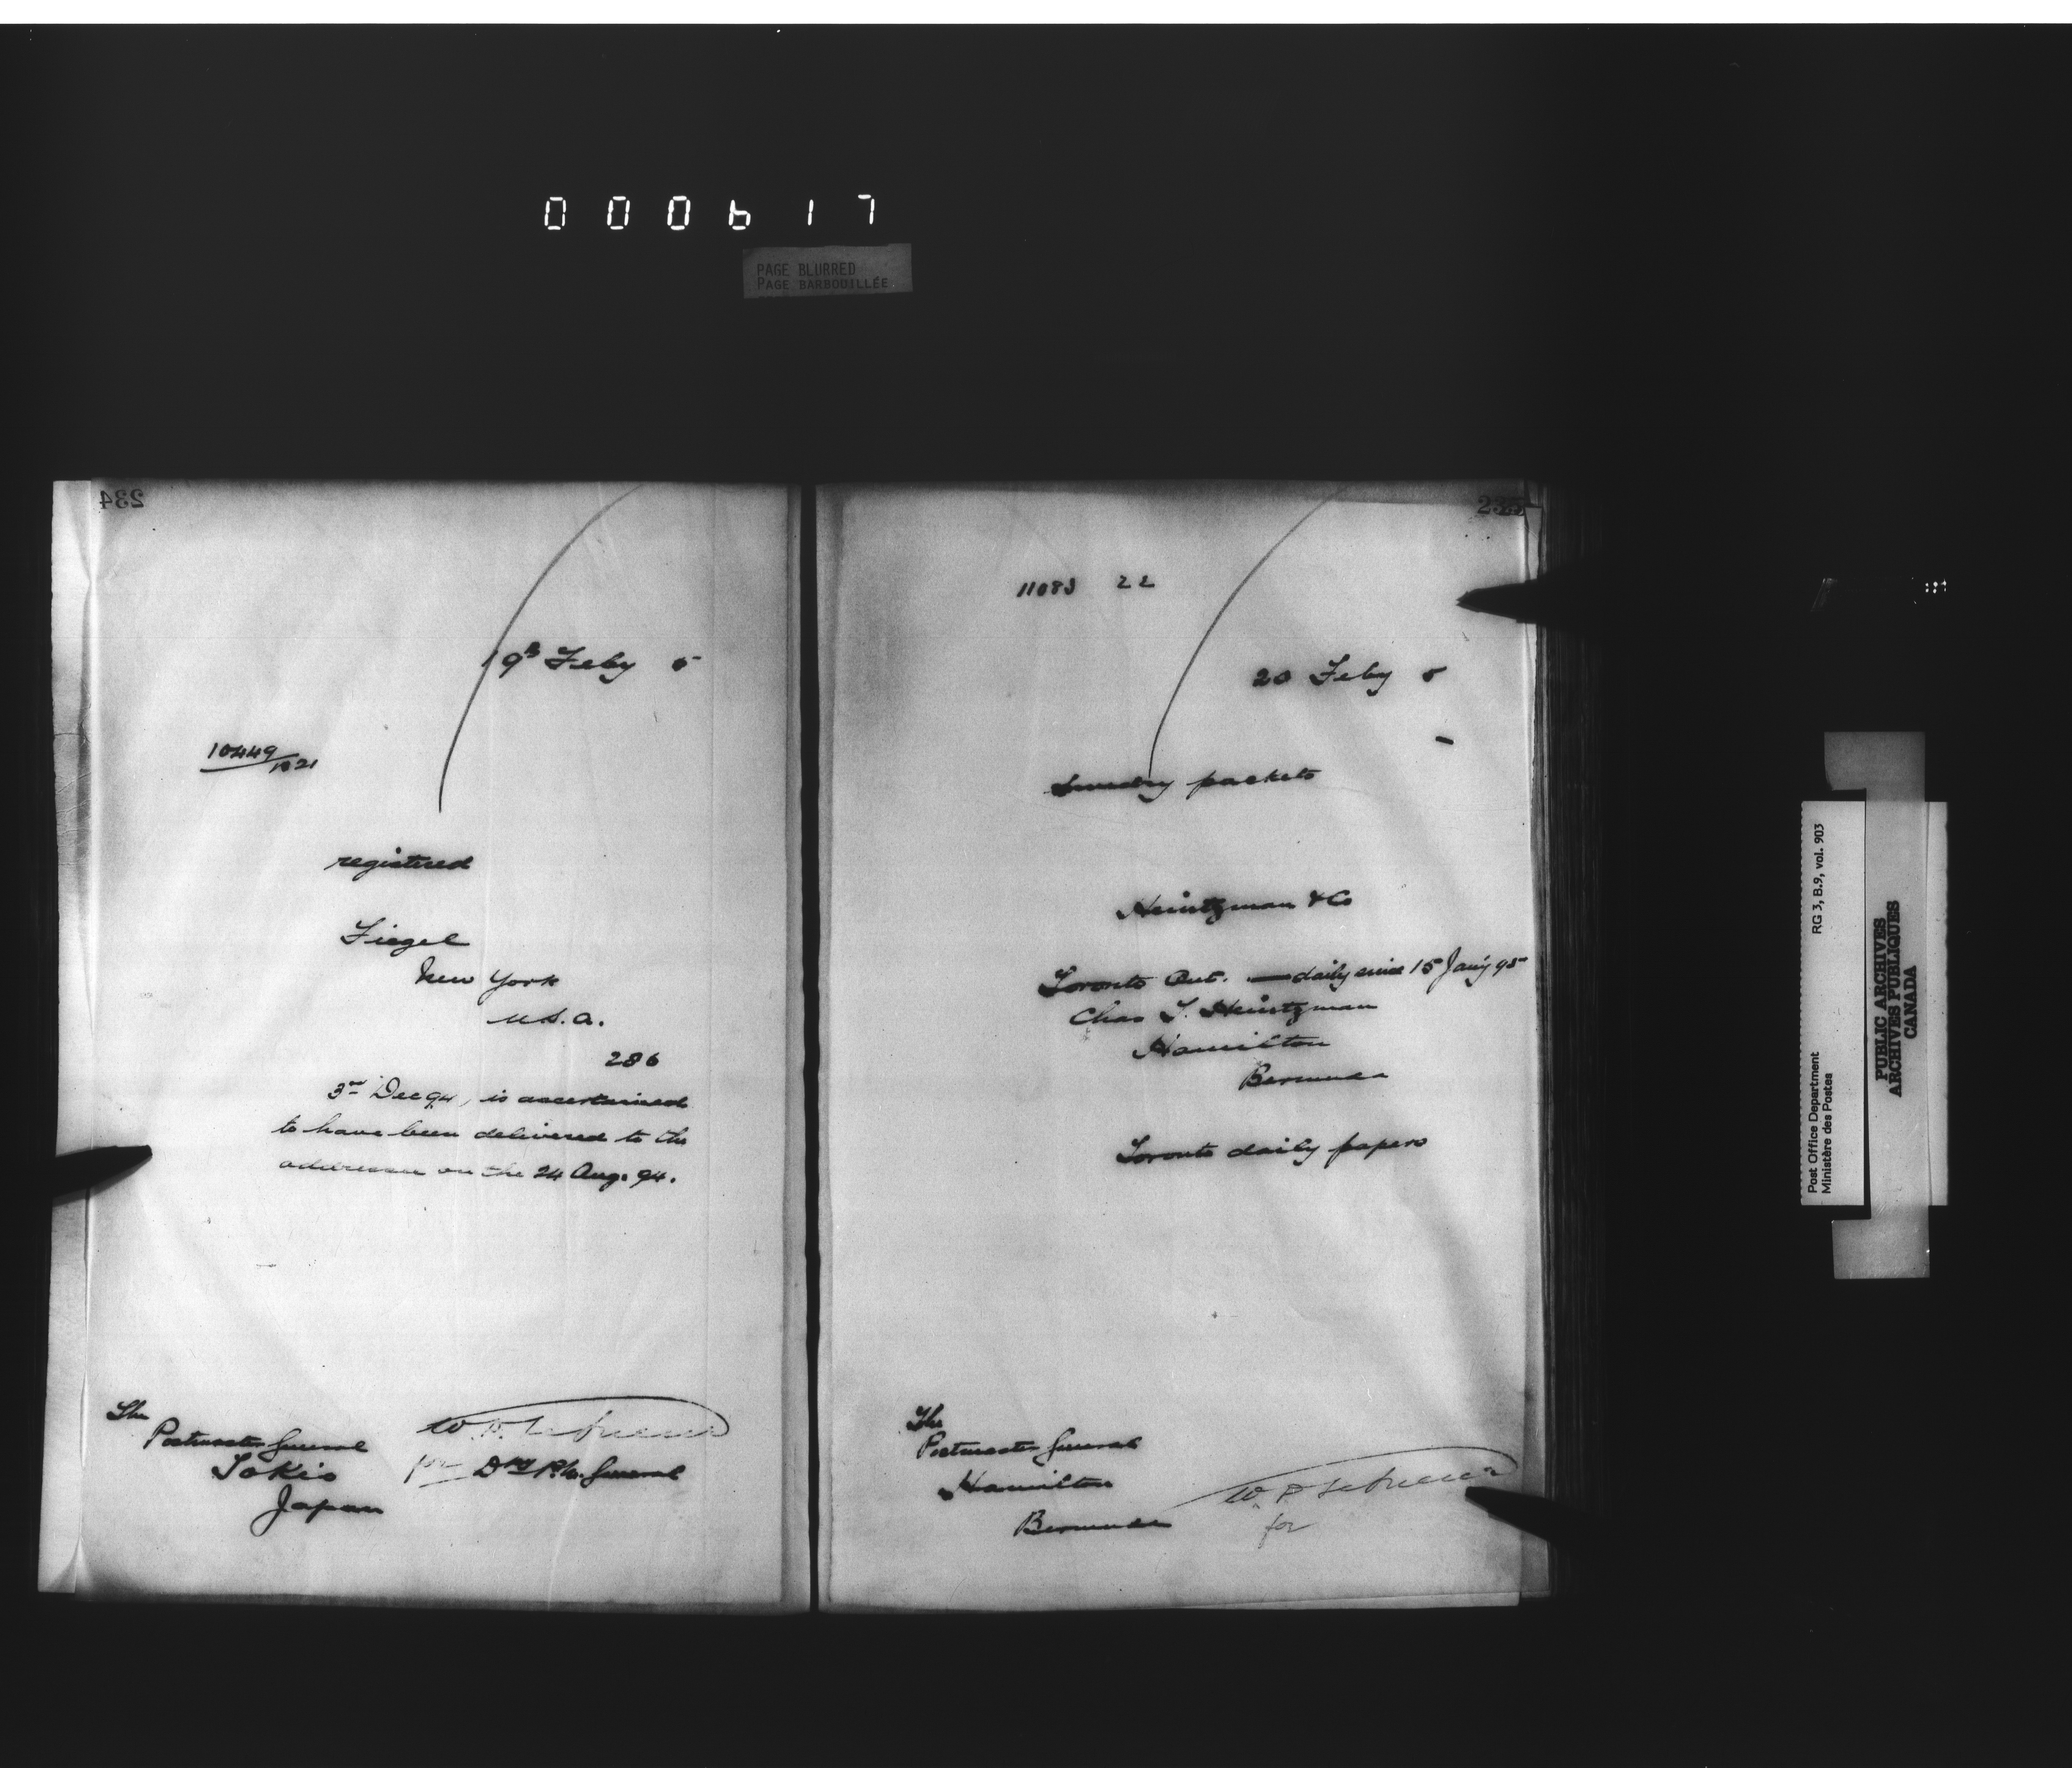 000617
PAGE BLURRED
PAGE BARBOUILLÉE
234
19th Feby 5
10449/1021
registered
Fiegel
New York
U.S.A.
286
3rd Dec 94, is ascertained
to have been delivered to the
addressee on the 24 Aug. 94.
The
Postmaster General
Tokio
Japan
W.
for Dy P.M. General
235
11083 22
20 Feby 5
Sundry packets
Heintzman & Co
Toronto Ont. — daily since 15 Jany 95
Chas T. Heintzman
Hamilton
Bermuda
Toronto daily papers
The
Postmaster General
Hamilton
Bermuda
W.
for
Post Office Department
Ministère des Postes
RG 3, B.9, vol. 903
PUBLIC ARCHIVES
ARCHIVES PUBLIQUES
CANADA